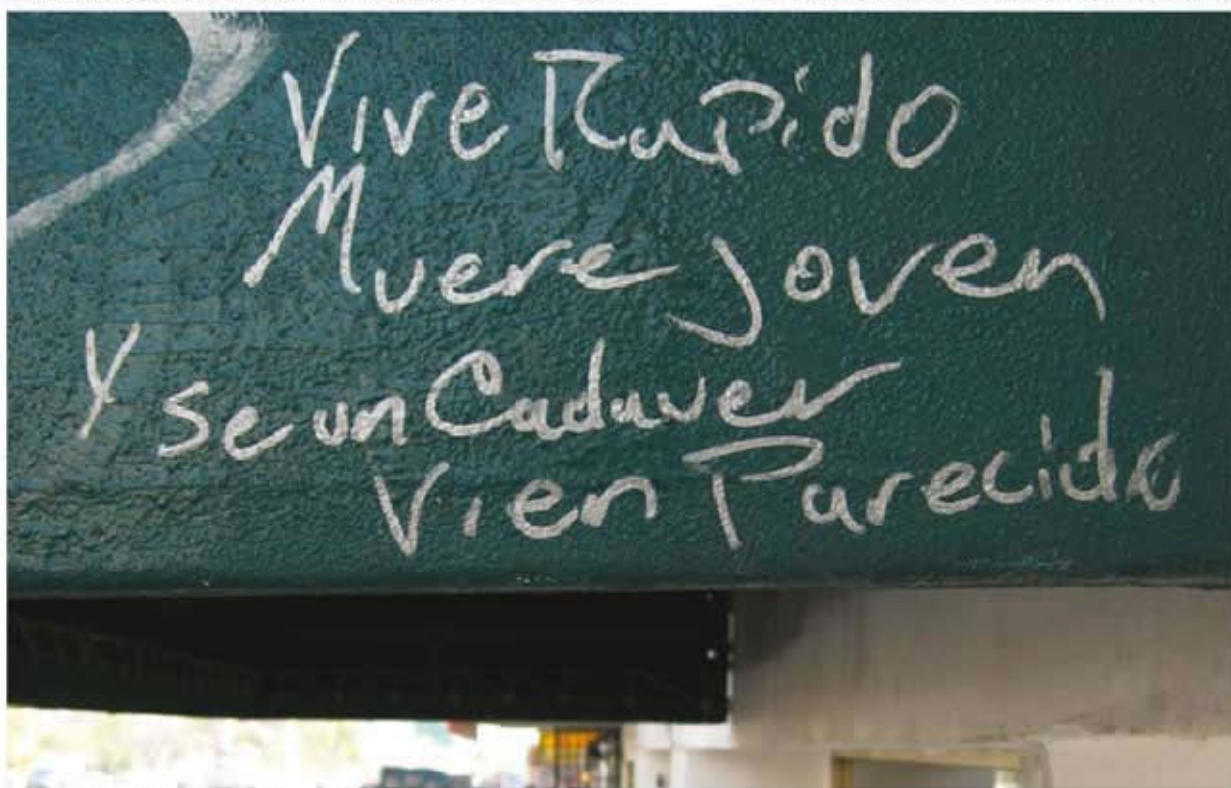 Vive Rapido
Muere joven
Y se un Cadaver
Vien Parecido